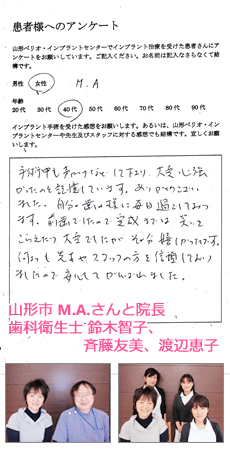 患者様へのアンケート
山形ペリオ・インプラントセンターでインプラント治療を受けた患者さんにア
ンケートをお願いしています。ご記入ください。お名前は記入なさらなくて結
構です。
男性 女性 M.A
年齢
20代 30代 40代 50代 60代 70代 80代 90代
インプラント手術を受けた感想をお願いします。あるいは、山形ペリオ・イン
プラントセンターや先生及びスタッフに対する感想でも結構です。宜しくお願
いします。
手術中も手をにぎって下さり、大変心強
かったのを記憶しています。ありがとうござい
ました。自分の歯の様に毎日過ごしており
ます。前歯でしたので完成までは笑いを
こらえたり大変でしたが その分 嬉しかったです。
何よりも先生やスタッフの方を信頼しており
ましたので安心してがんばれました。
山形市 M.A.さんと院長
歯科衛生士 鈴木智子、
斉藤友美、渡辺恵子